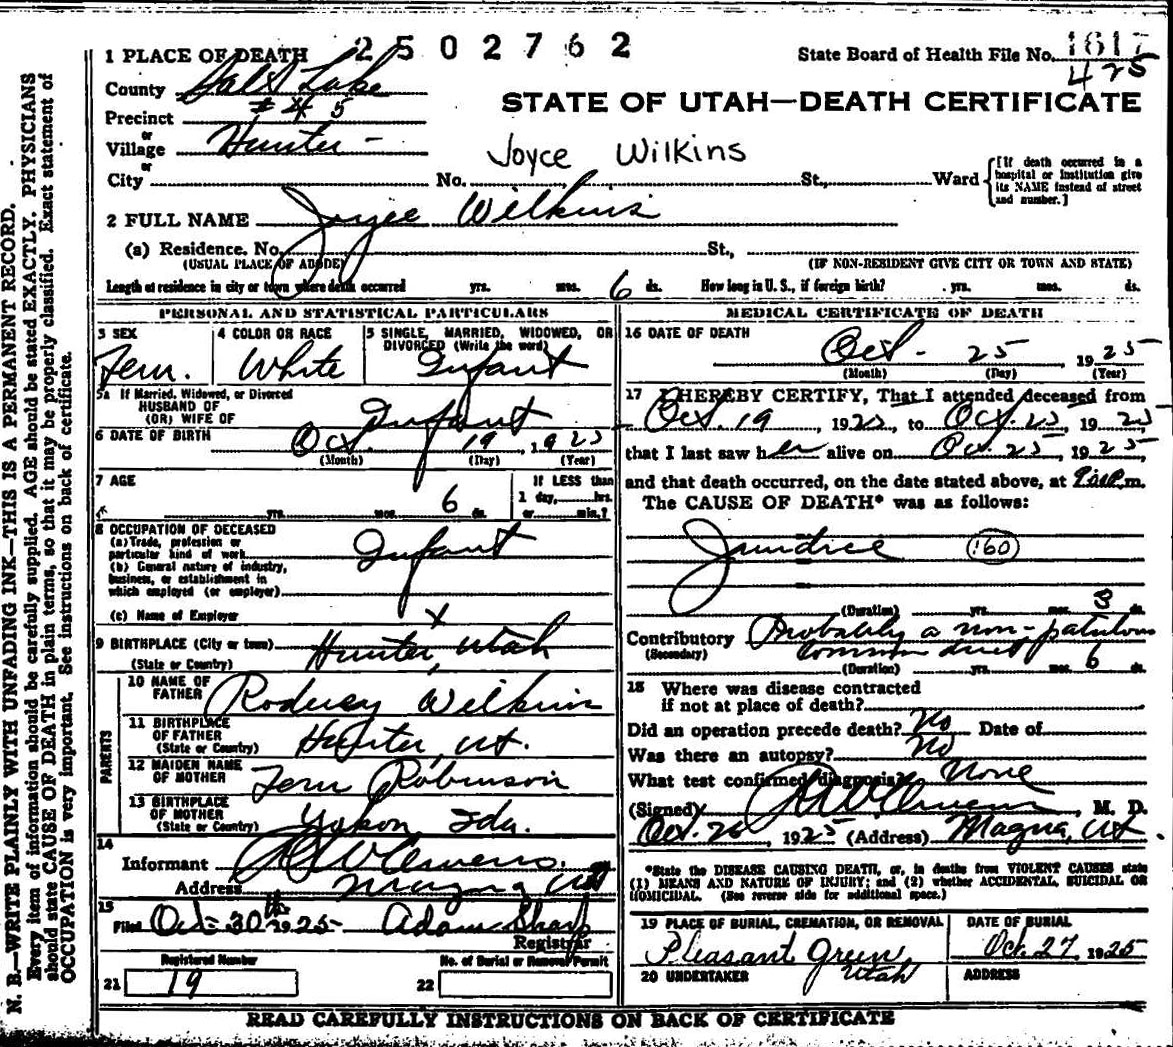 1 PLACE OF DEATH 2502762
State Board of Health File No. 1617
425
County Salt Lake
STATE OF UTAH—DEATH CERTIFICATE
Precinct # 4 5
or
Village Hunter -
or
Joyce Wilkins
City No. St., Ward
[If death occurred in a hospital or institution give its NAME instead of street and number.]
2 FULL NAME Joyce Wilkins
(a) Residence. No. St.,
(USUAL PLACE OF ABODE) (IF NON-RESIDENT GIVE CITY OR TOWN AND STATE)
Length of residence in city or town where death occurred yrs. mos. 6 ds. How long in U. S., if foreign birth? yrs. mos. ds.
PERSONAL AND STATISTICAL PARTICULARS
3 SEX 4 COLOR OR RACE 5 SINGLE, MARRIED, WIDOWED, OR
DIVORCED (Write the word)
Fem. White Infant
5a If Married, Widowed, or Divorced
HUSBAND OF
(OR) WIFE OF Infant
6 DATE OF BIRTH Oct. 19 1925
(Month) (Day) (Year)
7 AGE If LESS than
1 day, hrs.
yrs. mos. 6 ds. or min.?
8 OCCUPATION OF DECEASED
(a) Trade, profession or
particular kind of work Infant
(b) General nature of industry,
business, or establishment in
which employed (or employer)
(c) Name of Employer x
9 BIRTHPLACE (City or town) Hunter, Utah
(State or Country)
PARENTS
10 NAME OF
FATHER Rodney Wilkins
11 BIRTHPLACE
OF FATHER
(State or Country) Hunter, Ut.
12 MAIDEN NAME
OF MOTHER Fern Robinson
13 BIRTHPLACE
OF MOTHER
(State or Country) Ida.
14
Informant Clemens.
Address Magna Ut
15
Filed Oct 30th 1925 Adam Sharp
Registrar
Registered Number No. of Burial or Removal Permit
21 19 22
MEDICAL CERTIFICATE OF DEATH
16 DATE OF DEATH
Oct. 25 1925
(Month) (Day) (Year)
17 I HEREBY CERTIFY, That I attended deceased from
Oct. 19, 1925, to Oct. 25, 1925
that I last saw her alive on Oct. 25, 1925
and that death occurred, on the date stated above, at m.
The CAUSE OF DEATH* was as follows:
Jaundice 160
(Duration) yrs. mos. 3 ds.
Contributory Probably a non-patulous
(Secondary) common duct
(Duration) yrs. mos. 6 ds.
18 Where was disease contracted
if not at place of death?
Did an operation precede death? No Date of
Was there an autopsy? No
What test confirmed diagnosis? None
(Signed) Clemens M. D.
Oct. 26, 1925 (Address) Magna, Ut.
*State the DISEASE CAUSING DEATH, or, in deaths from VIOLENT CAUSES state
(1) MEANS AND NATURE OF INJURY; and (2) whether ACCIDENTAL, SUICIDAL OR
HOMICIDAL. (See reverse side for additional space.)
19 PLACE OF BURIAL, CREMATION, OR REMOVAL DATE OF BURIAL
Pleasant Green, Utah Oct. 27, 1925
20 UNDERTAKER ADDRESS
READ CAREFULLY INSTRUCTIONS ON BACK OF CERTIFICATE
N. B.—WRITE PLAINLY WITH UNFADING INK—THIS IS A PERMANENT RECORD.
Every item of information should be carefully supplied. AGE should be stated EXACTLY. PHYSICIANS
should state CAUSE OF DEATH in plain terms, so that it may be properly classified. Exact statement of
OCCUPATION is very important. See instructions on back of certificate.